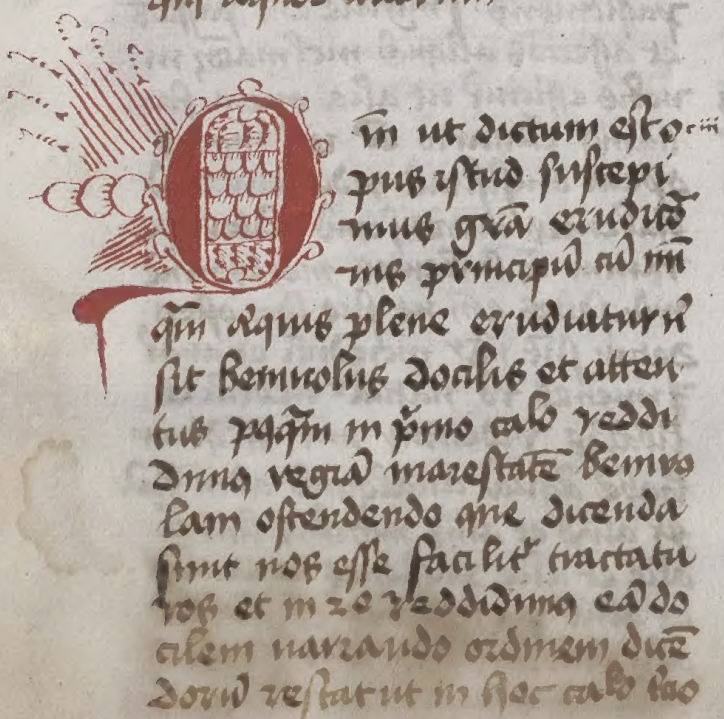 Qm̅ ut dictum est o
pus istud suscepi
mus gr̅a eruditõ
nis p̅ncipiu̅ cu̅ nu̅
qm̅ aliquis plene erudiatur n̅
sit beniuolus docilis et atten
tus pq̅m in p̅mo cal̅o reddi
dimꝰ regia̅ maiestate̅ beniuo
lam ostendendo que dicenda
sunt nos esse facilit̅ tractatu
ros et in 2o reddidimꝰ ea̅ do
cilem narrando ordinem dice̅
doru̅ restat ut in hoc cal̅o t̅cio